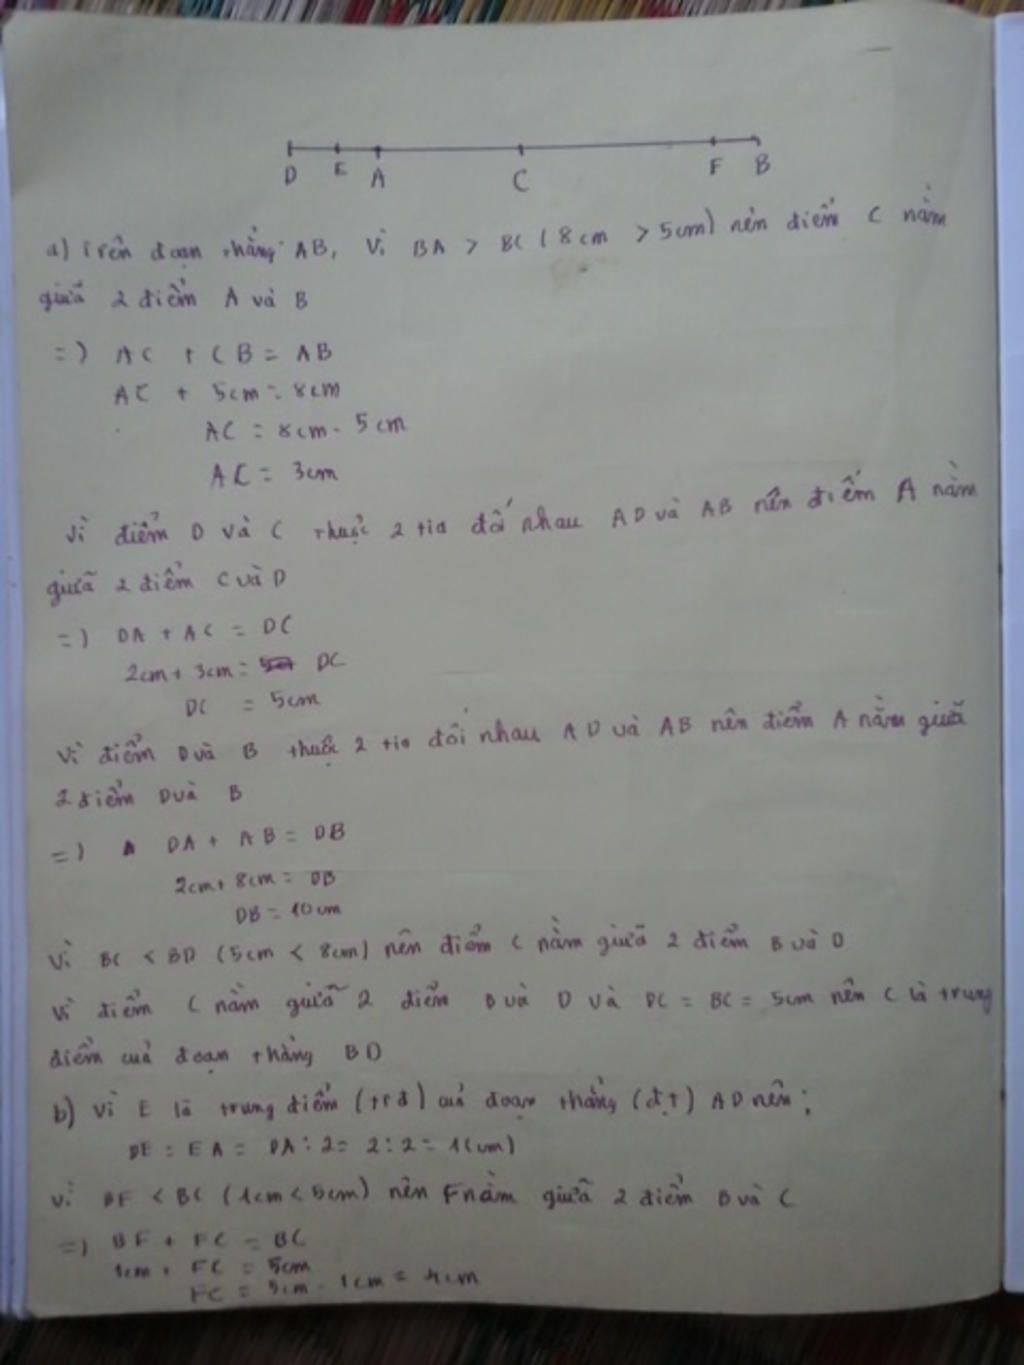 D E A C F B
a) Trên đoạn thẳng AB, Vì BA > BC (8cm > 5cm) nên điểm C nằm
giữa 2 điểm A và B
=) AC + CB = AB
AC + 5cm = 8cm
AC = 8cm - 5cm
AC = 3cm
Vì điểm D và C thuộc 2 tia đối nhau AD và AB nên điểm A nằm
giữa 2 điểm C và D
=) DA + AC = DC
2cm + 3cm = DC
DC = 5cm
Vì điểm D và B thuộc 2 tia đối nhau AD và AB nên điểm A nằm giữa
2 điểm D và B
=) A DA + AB = DB
2cm + 8cm = DB
DB = 10cm
Vì BC < BD (5cm < 8cm) nên điểm C nằm giữa 2 điểm B và D
Vì điểm C nằm giữa 2 điểm B và D và DC = BC = 5cm nên C là trung
điểm của đoạn thẳng BD
b) Vì E là trung điểm (trđ) của đoạn thẳng (đt) AD nên;
DE = EA = DA : 2 = 2 : 2 = 1(cm)
Vì BF < BC (1cm < 5cm) nên F nằm giữa 2 điểm B và C
=) BF + FC = BC
1cm + FC = 5cm
FC = 5cm - 1cm = 4cm